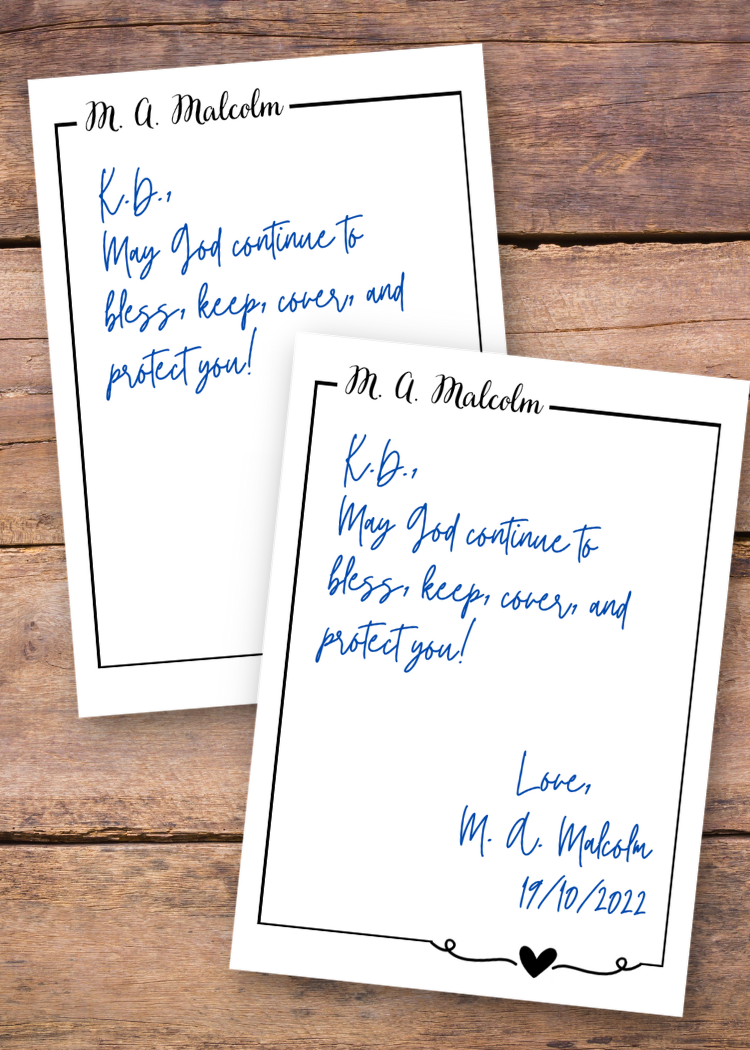 M. A. Malcolm
K.D.,
May God continue to
bless, keep, cover, and
protect you!
M. A. Malcolm
K.D.,
May God continue to
bless, keep, cover, and
protect you!
Love,
M. A. Malcolm
19/10/2022